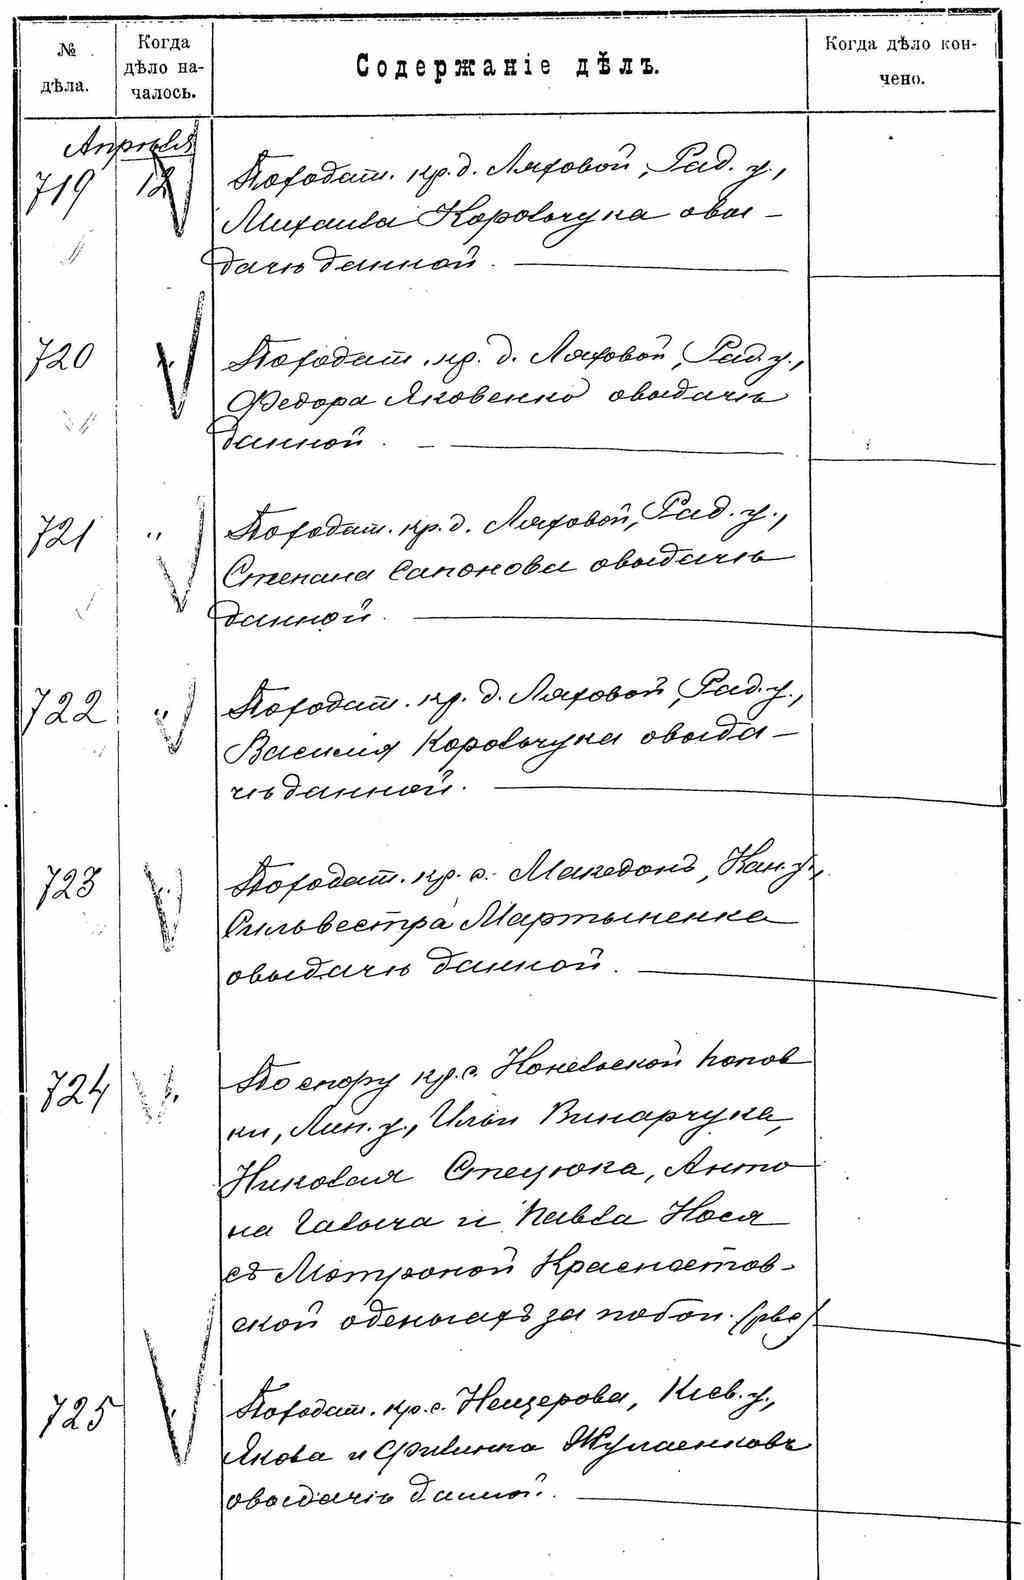 № дѣла.
Когда дѣло началось.
Содержаніе дѣлъ.
Когда дѣло кончено.
Апрѣля
719 12 По ходат. кр. д. Ляховой, Рад. у.,
Михаила Коровчука о вы-
дачѣ данной.
720 " По ходат. кр. д. Ляховой, Рад. у.,
Федора Яковенко о выдачѣ
данной.
721 " По ходат. кр. д. Ляховой, Рад. у.,
Степана Сапонова о выдачѣ
данной.
722 " По ходат. кр. д. Ляховой, Рад. у.,
Василія Коровчука о выда-
чѣ данной.
723 " По ходат. кр. с. Македонъ, Кан. у.,
Сильвестра Мартыненка
о выдачѣ данной.
724 " По спору кр. с. Конельской Попов
ки, Лип. у., Ильи Винарчука,
Николая Стецюка, Анто
на Галыча и Павла Носа
съ Мотроной Красностав-
ской о деньгахъ за побои.
725 " По ходат. кр. с. Нещерова, Кіев. у.,
Якова и Филиппа
о выдачѣ данной.